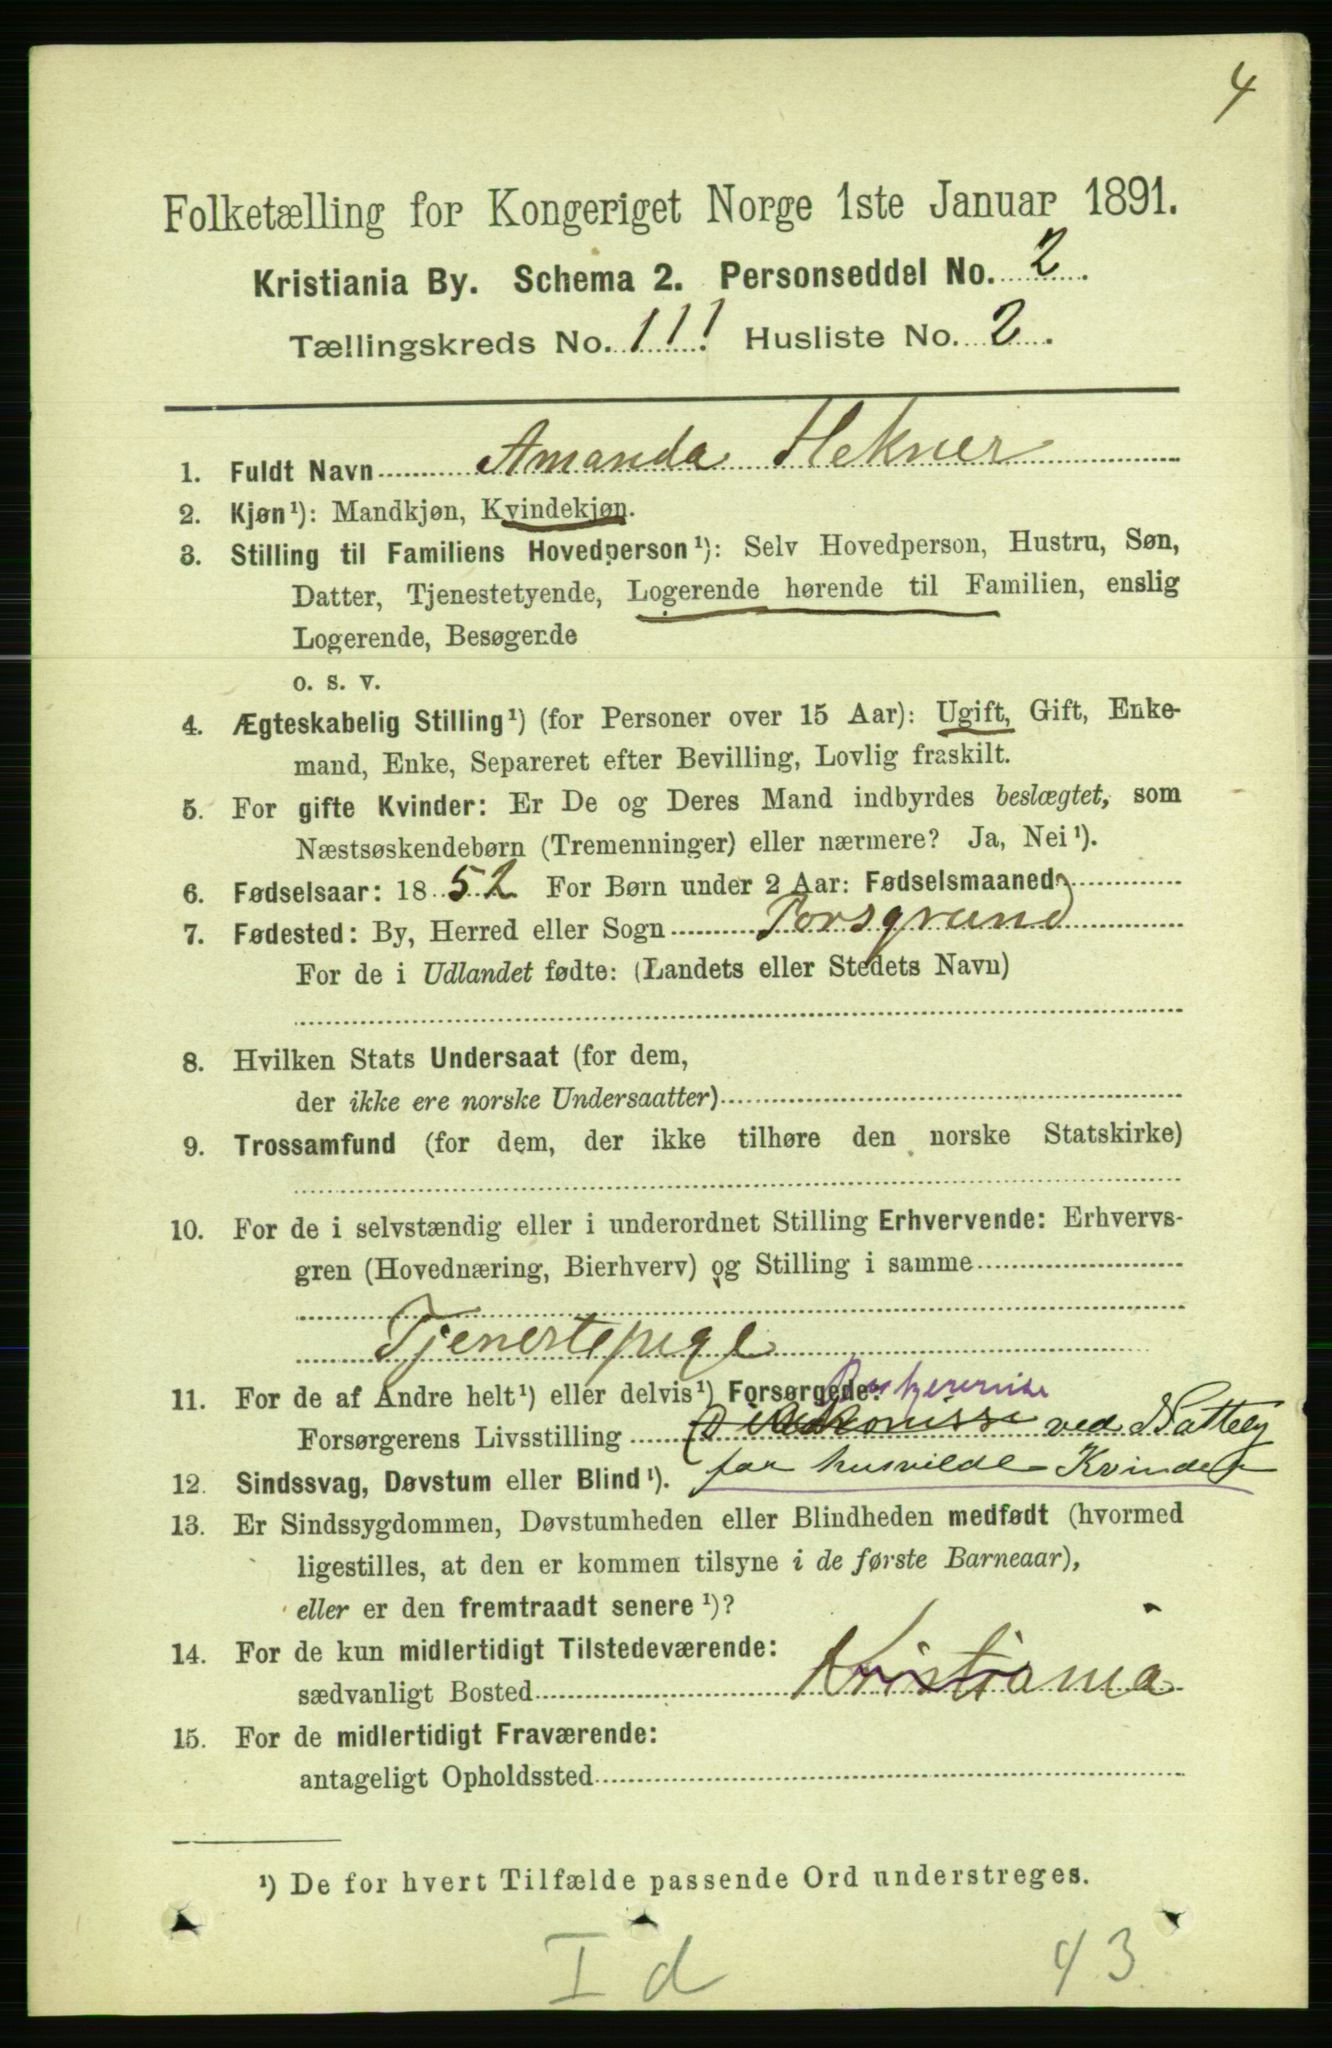 4
Folketælling for Kongeriget Norge 1ste Januar 1891.
Kristiania By. Schema 2. Personseddel No. 2.
Tællingskreds No. 111 Husliste No. 2.
1. Fuldt Navn Amanda Hekner
2. Kjøn¹): Mandkjøn, Kvindekjøn.
3. Stilling til Familiens Hovedperson¹): Selv Hovedperson, Hustru, Søn,
Datter, Tjenestetyende, Logerende hørende til Familien, enslig
Logerende, Besøgende
o. s. v.
4. Ægteskabelig Stilling¹) (for Personer over 15 Aar): Ugift, Gift, Enke-
mand, Enke, Separeret efter Bevilling, Lovlig fraskilt.
5. For gifte Kvinder: Er De og Deres Mand indbyrdes beslægtet, som
Næstsøskendebørn (Tremenninger) eller nærmere? Ja, Nei¹).
6. Fødselsaar: 1852 For Børn under 2 Aar: Fødselsmaaned
7. Fødested: By, Herred eller Sogn Porsgrund
For de i Udlandet fødte: (Landets eller Stedets Navn)
8. Hvilken Stats Undersaat (for dem,
der ikke ere norske Undersaatter)
9. Trossamfund (for dem, der ikke tilhøre den norske Statskirke)
10. For de i selvstændig eller i underordnet Stilling Erhvervende: Erhvervs-
gren (Hovednæring, Bierhverv) og Stilling i samme
Tjenestepige
11. For de af Andre helt¹) eller delvis¹) Forsørgede:
Forsørgerens Livsstilling ved Nattely
for husvilde Kvinder
12. Sindssvag, Døvstum eller Blind¹).
13. Er Sindssygdommen, Døvstumheden eller Blindheden medfødt (hvormed
ligestilles, at den er kommen tilsyne i de første Barneaar),
eller er den fremtraadt senere¹)?
14. For de kun midlertidigt Tilstedeværende:
sædvanligt Bosted Kristiania
15. For de midlertidigt Fraværende:
antageligt Opholdssted
¹) De for hvert Tilfælde passende Ord understreges.
I d 43